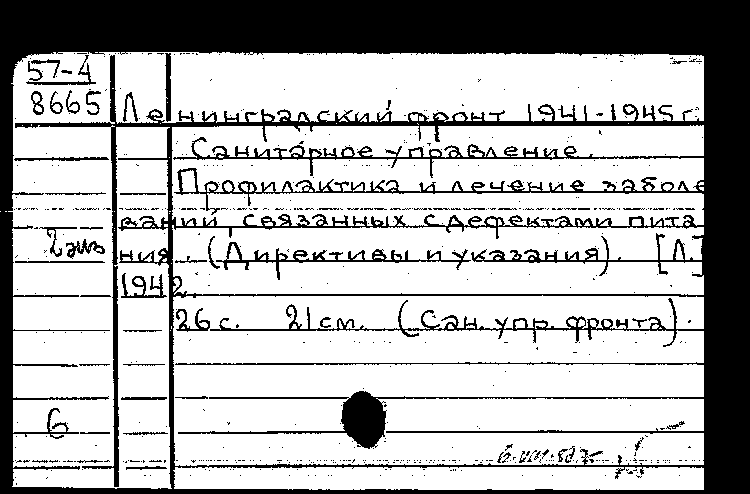 57-4
8665 Ленинградский фронт 1941-1945 г.
Санитарное управление.
Профилактика и лечение заболе
ваний, связанных с дефектами пита
2 экз ния. (Директивы и указания). [Л.]
1942.
26 с. 21 см. (Сан. упр. фронта).
6